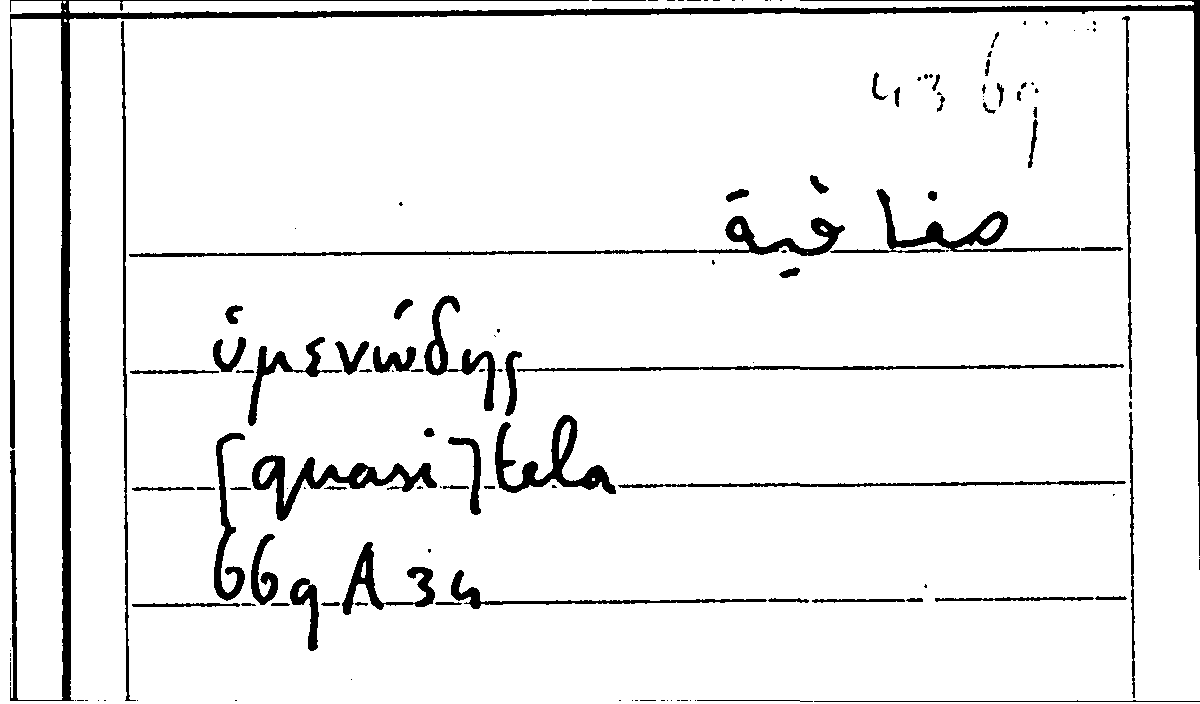 4369
صفاقية
ὑμενώδης
[quasi] tela
669 A 34